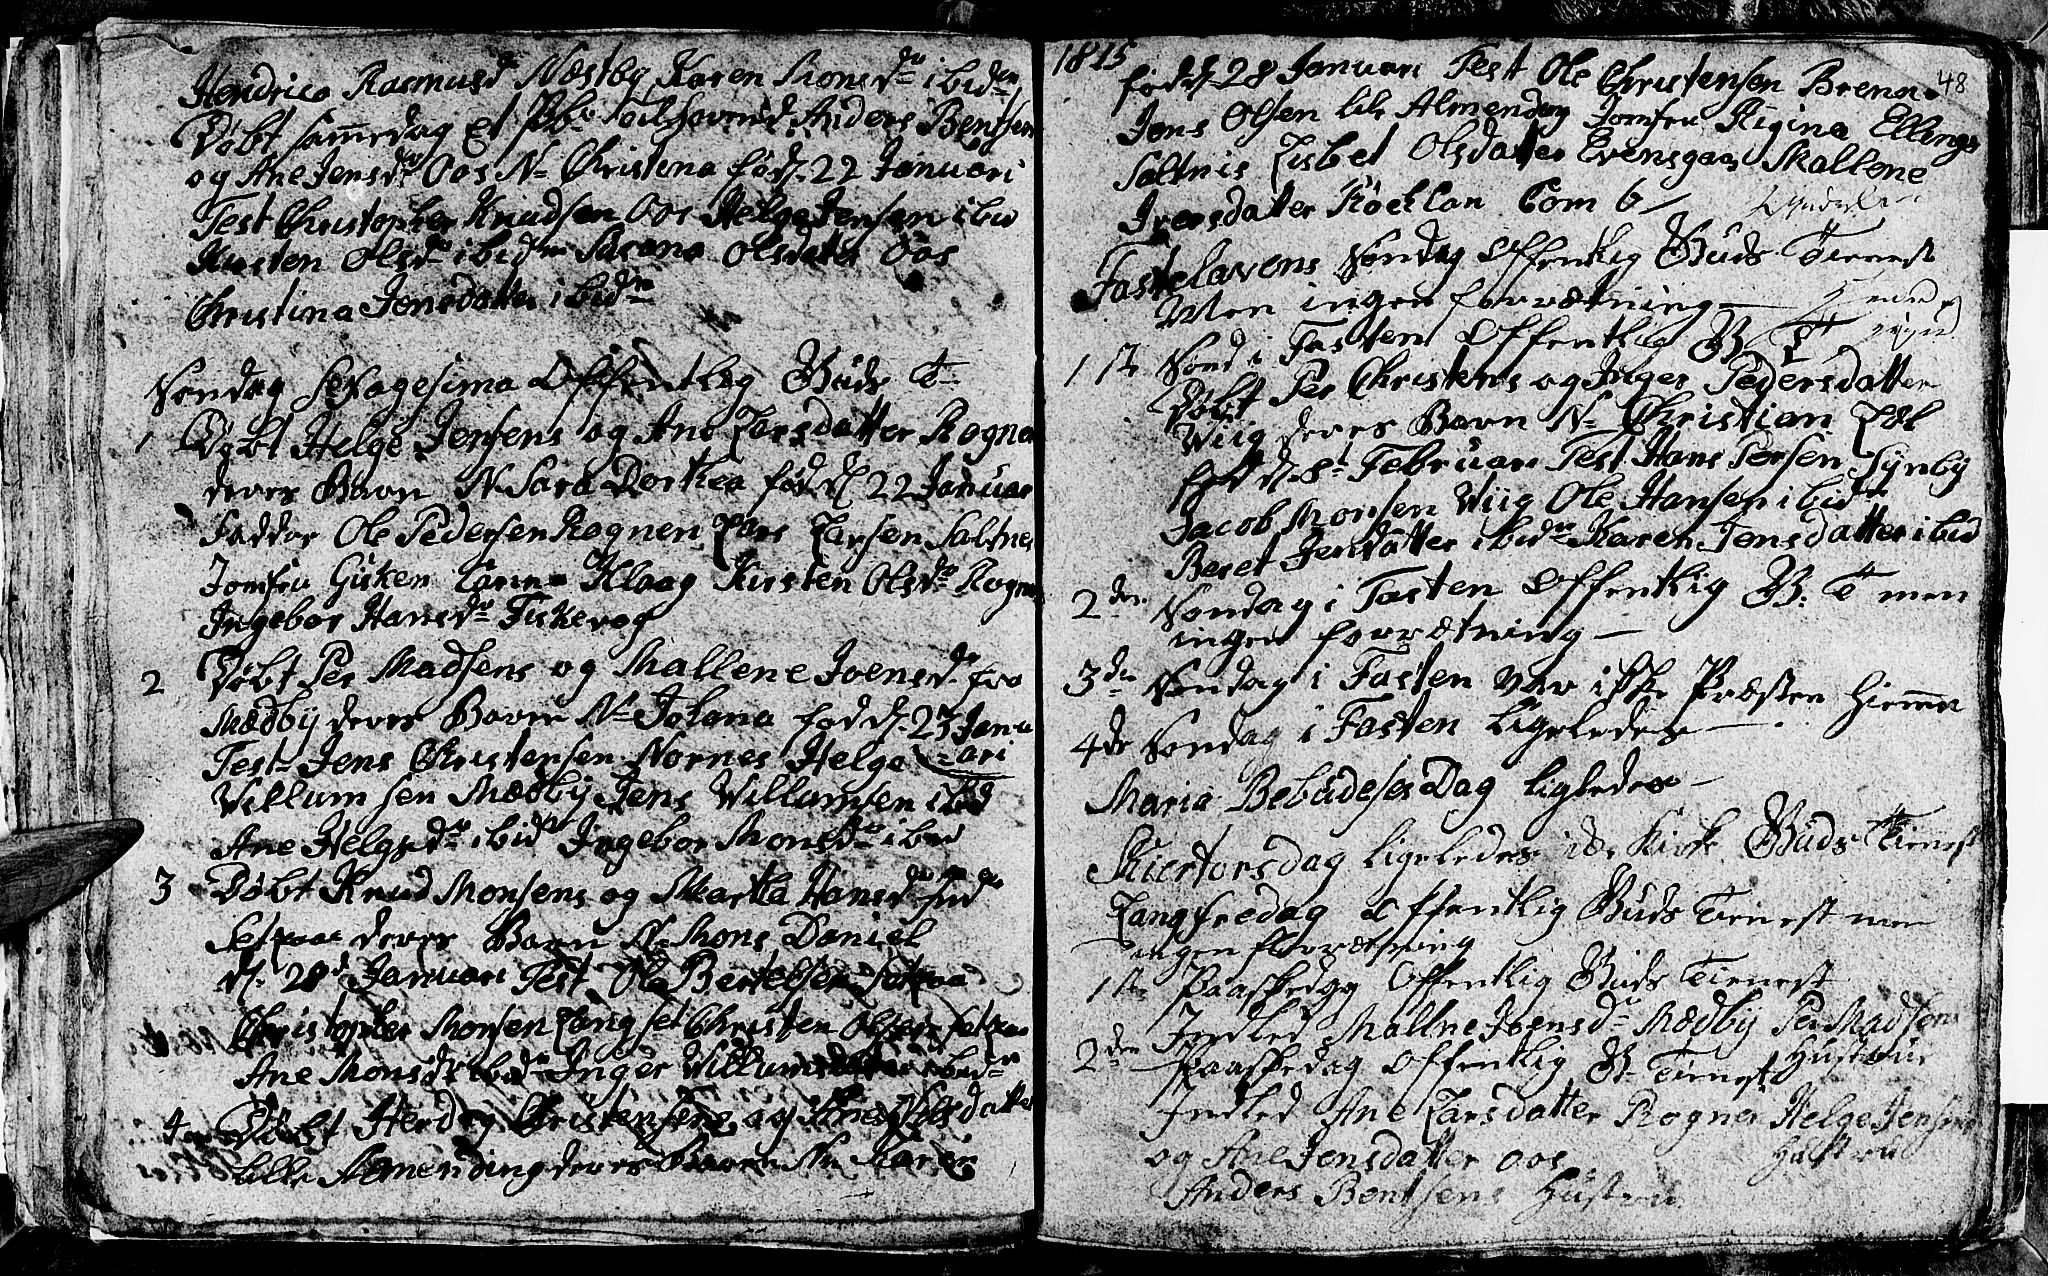 Hendrica Rasmusd Næstby Karen Monsdr ibidm
Døbt sammedag et Anders Bentsen
og Ane Jensdr Oos N Christena fød 22 Januari
Test Christopher Knudsen Oos Helge Jensen ibid
Kirsten Olsdr ibidm Susana Olsdater Oos
Christina Jensdatter ibidm
Søndag Sexagesima Offentlig Guds T
1 Døbt Helge Jensens og Ane Larsdatter Rogne
deres Barn N Sara Dorthea fød d 22 Januar
Faddor Ole Pedersen Rognen Lars Larsen Saltnes
Jomfru Giken Klaag Kirsten Olsdr Rogne
Ingebor Hansdr Fiskevog
2 Døbt Per Madsens og Mallene Joensd fra
Mædby deres Barn N Jolana fød d 23 Janu
Test Jens Christensen Nornes Helge =ari
Villumsen Mædby Jens Villumsen ibid
Ane Helgedr ibid Ingebor Monsdr ibid
3 Døbt Knud Monsens og Martha Hansd
Setraae deres Barn N Mons Daniel
d. 28 Januari Test Ole Bertelsen Setraa
Christopher Monsen Langset Christen Olsen Setraa
Ane Monsdr ibid Inger Villumsdatter ibidm
4 Døbt Herdog Christensens og Ane Nilsdatter
lille Almending deres Barn N Karen
1815
48
fød d 28 Januari Test Ole Christensen Brenna
Jens Olsen lille Almending Jomfru Rigina Ellings
Saltnis Lisbet Olsdatter Evensgaar Mallene
Iversdatter Kocklan Com 6
Fastelavens Søndag Offentlig Guds Tienest
Men ingen forrætning
1ste Sønd i Fasten Offentlig G T
Døbt Per Christens og Inger Pedersdatter
Wiig deres Barn N Christian
fød d 8 Februari Test Hans Persen Synby
Jacob Monsen Wiig Ole Hansen ibid
Beret Jensdatter ibidm Karen Jensdatter ibid
2den Søndag i Fasten Offentlig G: T men
ingen forrætning
3de Søndag i Fasten var ikke Præsten hiemme
4de Søndag i Fasten ligeledes
Maria Bebudelses Dag ligledes
Skiertorsdag ligeledes ide Kirke Guds Tienest
Langfredag Offentlig Guds Tienest men
ingen forrætning
1ste Paaskedag Offentlig Guds Tienest
Indled Mallne Joensdr Mædby Per Madsens
Hustrue
2den Paaskedag Offentlig G Tienest
Indled Ane Larsdatter Rogne Helge Jensens
Hustrue
og Ane Jensdatter Oos
Anders Bentsens Hustru